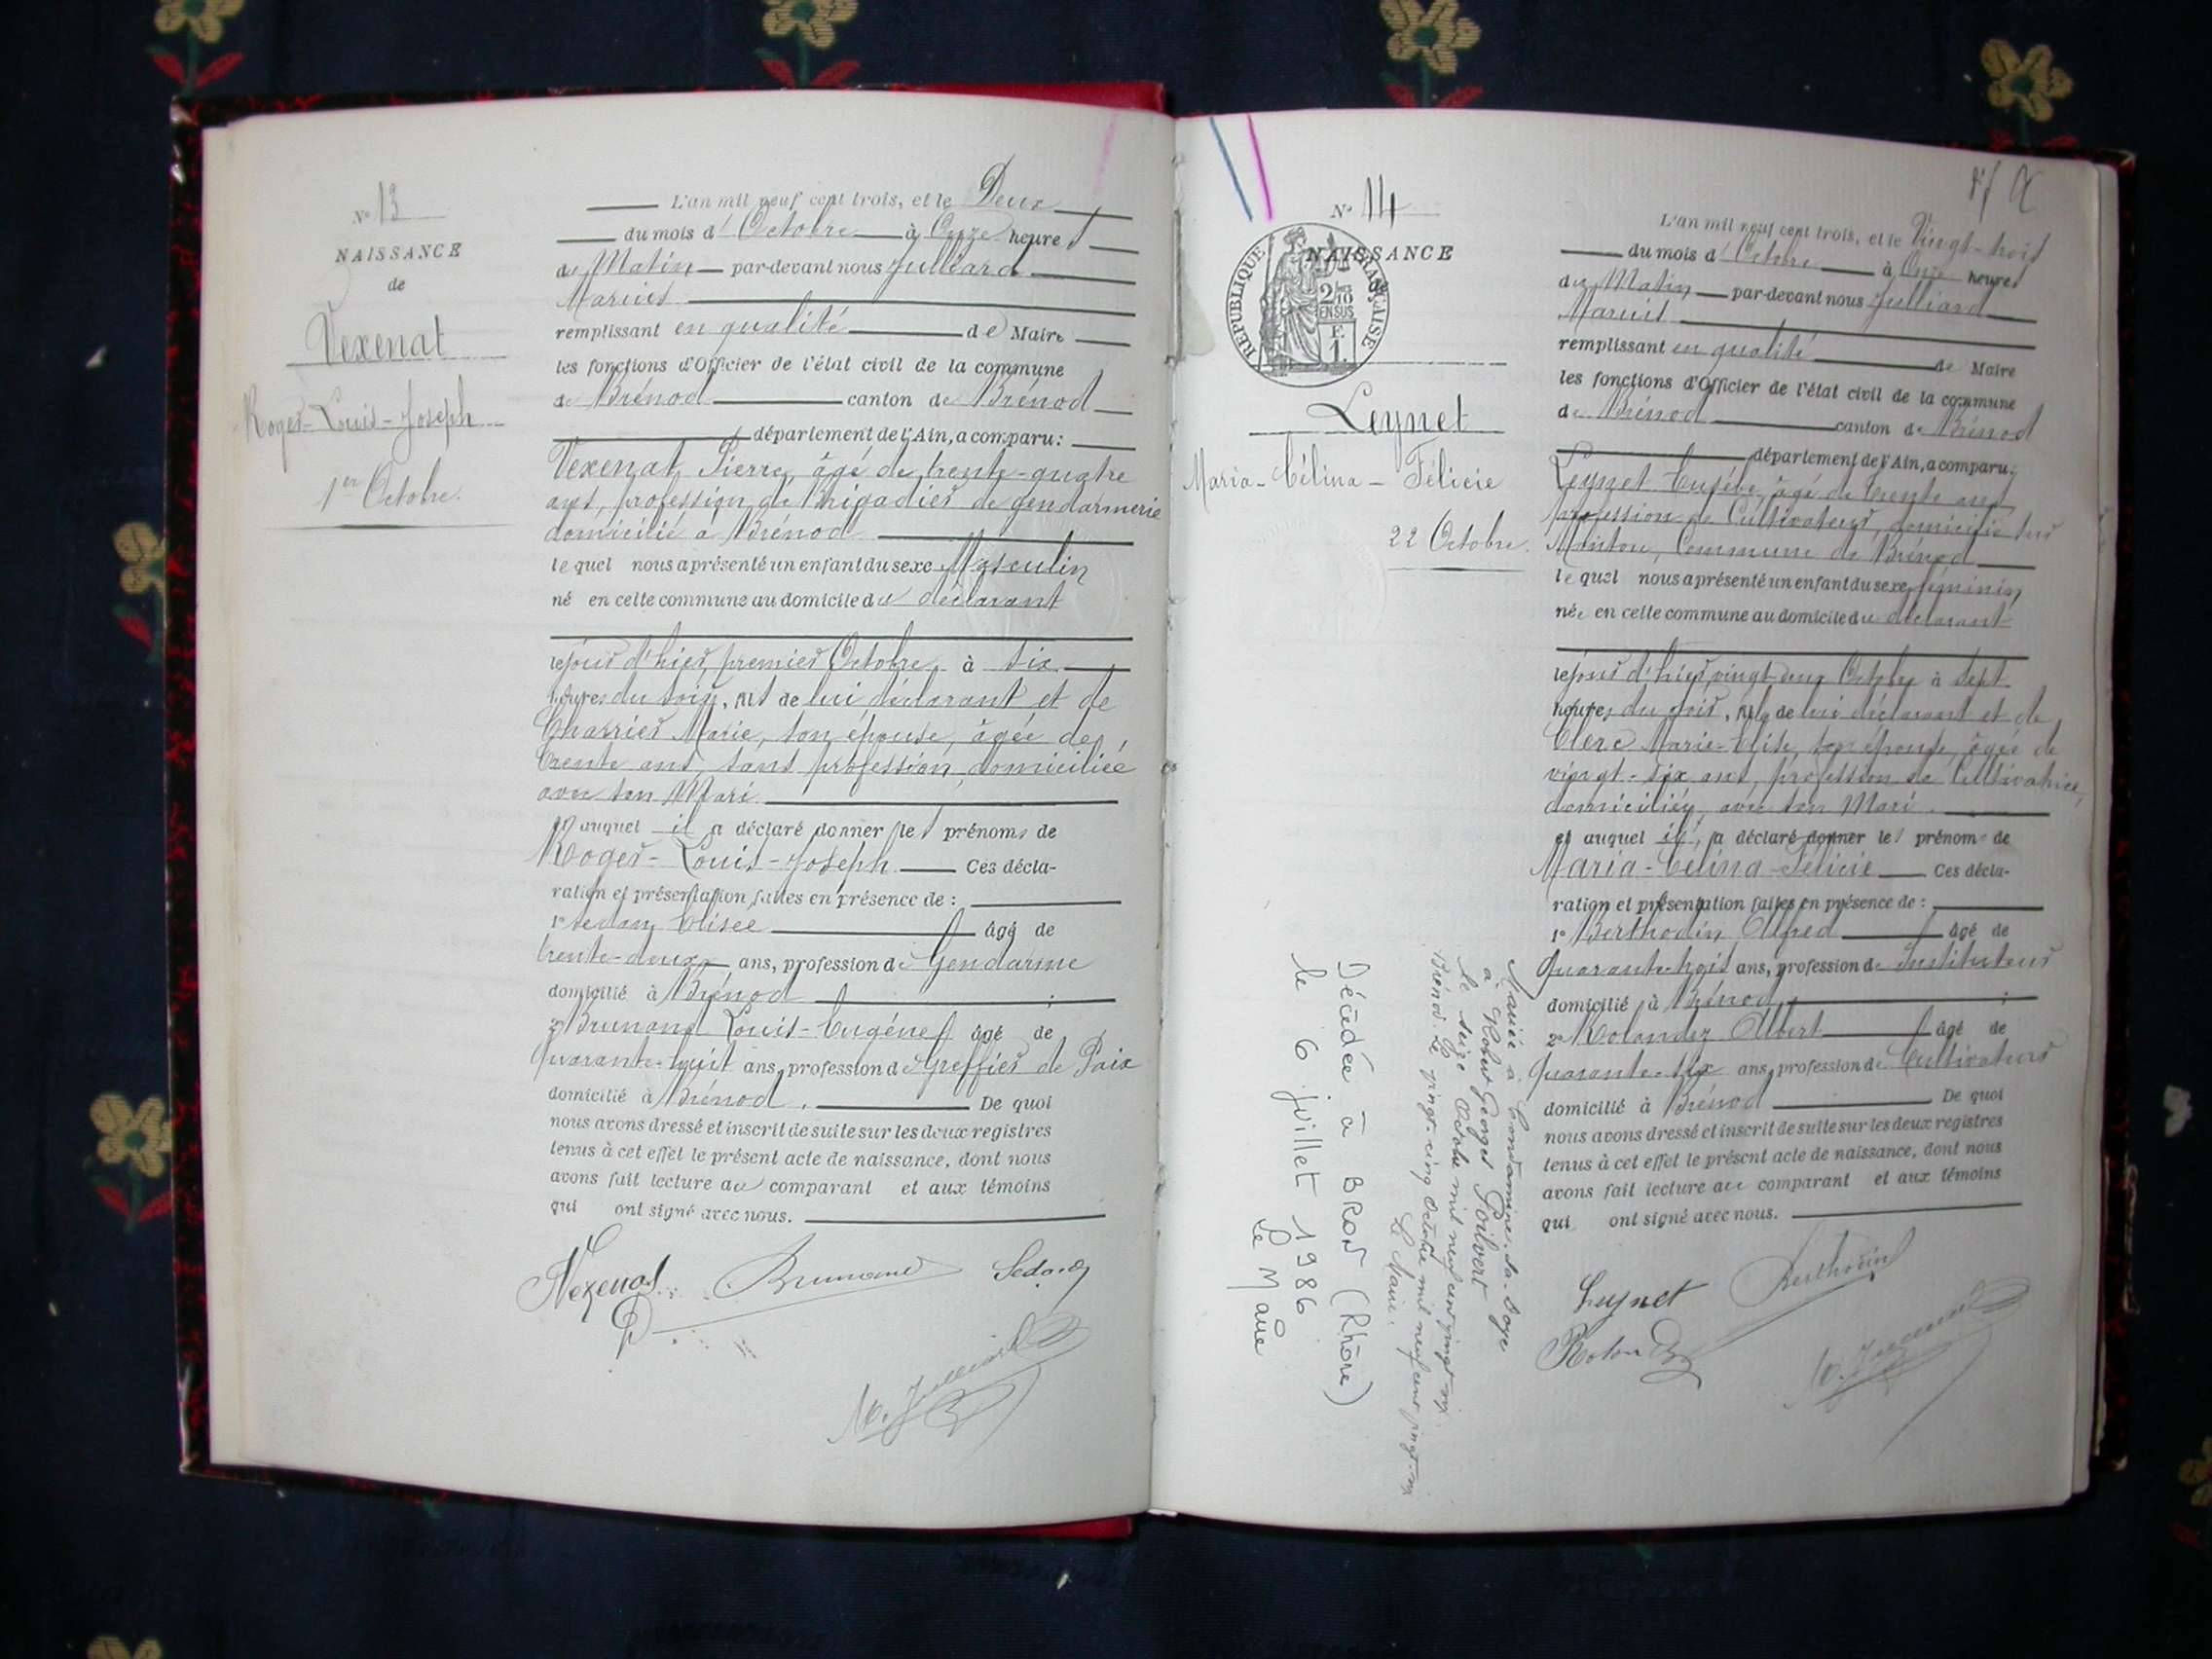 N° 13
NAISSANCE
de
Vexenat
Roger-Louis-Joseph
1er Octobre.
L'an mil neuf cent trois, et le Deux
du mois d'Octobre à Onze heures
du Matin par-devant nous Julliard
Marius
remplissant en qualité de Maire
les fonctions d'Officier de l'état civil de la commune
de Brénod canton de Brénod
département de l'Ain, a comparu:
Vexenat Pierre, âgé de trente-quatre
ans, profession de Brigadier de gendarmerie
domicilié à Brénod
lequel nous a présenté un enfant du sexe Masculin
né en cette commune au domicile du déclarant
le jour d'hier, premier Octobre, à six
heures du soir, fils de lui déclarant et de
Charrier Marie, son épouse, âgée de
trente ans, sans profession, domiciliée
avec son Mari
et auquel il a déclaré donner les prénoms de
Roger-Louis-Joseph Ces décla-
ration et présentation faites en présence de :
1° Sedan Elisée âgé de
trente-deux ans, profession de Gendarme
domicilié à Brénod ;
2° Brunand Louis-Eugène âgé de
quarante-huit ans, profession de Greffier de Paix
domicilié à Brénod. De quoi
nous avons dressé et inscrit de suite sur les deux registres
tenus à cet effet le présent acte de naissance, dont nous
avons fait lecture au comparant et aux témoins
qui ont signé avec nous.
Vexenat Brunand Sedan
M. Julliard
N° 14
NAISSANCE
de
RÉPUBLIQUE FRANÇAISE
2/10 EN SUS
F.
1.
Leynet
Maria-Célina-Félicie
22 Octobre.
L'an mil neuf cent trois, et le Vingt-trois
du mois d'Octobre à Onze heures
du Matin par-devant nous Julliard
Marius
remplissant en qualité de Maire
les fonctions d'Officier de l'état civil de la commune
de Brénod canton de Brénod
département de l'Ain, a comparu:
Leynet Eusébe, âgé de trente ans
profession de Cultivateur, domicilié
Commune de Brénod
lequel nous a présenté un enfant du sexe féminin
née en cette commune au domicile du déclarant
le jour d'hier, vingt-deux Octobre à sept
heures du soir, fille de lui déclarant et de
Clerc Marie-Elise, son épouse, âgée de
vingt-six ans, profession de Cultivatrice,
domiciliée avec son Mari.
et auquel il a déclaré donner les prénoms de
Maria-Célina-Félicie Ces décla-
ration et présentation faites en présence de :
1° Berthodin Alfred âgé de
quarante-trois ans, profession de Instituteur
domicilié à Brénod ;
2° Rolandez Albert âgé de
quarante-six ans, profession de Cultivateur
domicilié à Brénod De quoi
nous avons dressé et inscrit de suite sur les deux registres
tenus à cet effet le présent acte de naissance, dont nous
avons fait lecture au comparant et aux témoins
qui ont signé avec nous.
Leynet Berthodin
Rolandez
M. Julliard
Mariée à Condamine-la-Doye
à Robert Georges Poilvert
le seize Octobre mil neuf cent vingt-six
Brénod le vingt-cinq Octobre mil neuf cent vingt-six
Le Maire,
Décédée à BRON (Rhône)
le 6 juillet 1986
Le Maire